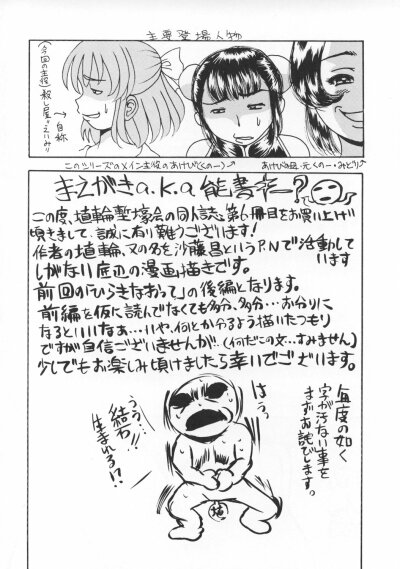 主要登場人物
(今回の主役)殺し屋・えいみり
→自称
このシリーズのメイン主役のあけび(くの一)→
あけびの姐・元くの一・みどり
まえがきa.k.a.能書き?
この度、埴輪墾壕会の同人誌、第6冊目をお買い上げ
頂きまして、誠に有り難うございます!
作者の埴輪、又の名を沙藤昌というP.Nで活動して
います
しがない底辺の漫画描きです。
前回の「ひらきなおって」の後編となります。
前編を仮に読んでなくても多分、多分…お分りに
なるといいなぁ…いや、何とか分るよう描いたつもり
ですが自信ございませんが…(何だこの文…すみません)
少しでもお楽しみ頂けましたら幸いでございます。
毎度の如く
字が汚ない事を
まずお詫びします。
はうっ
うぅっ
結わ!!
生まれる!?
埴